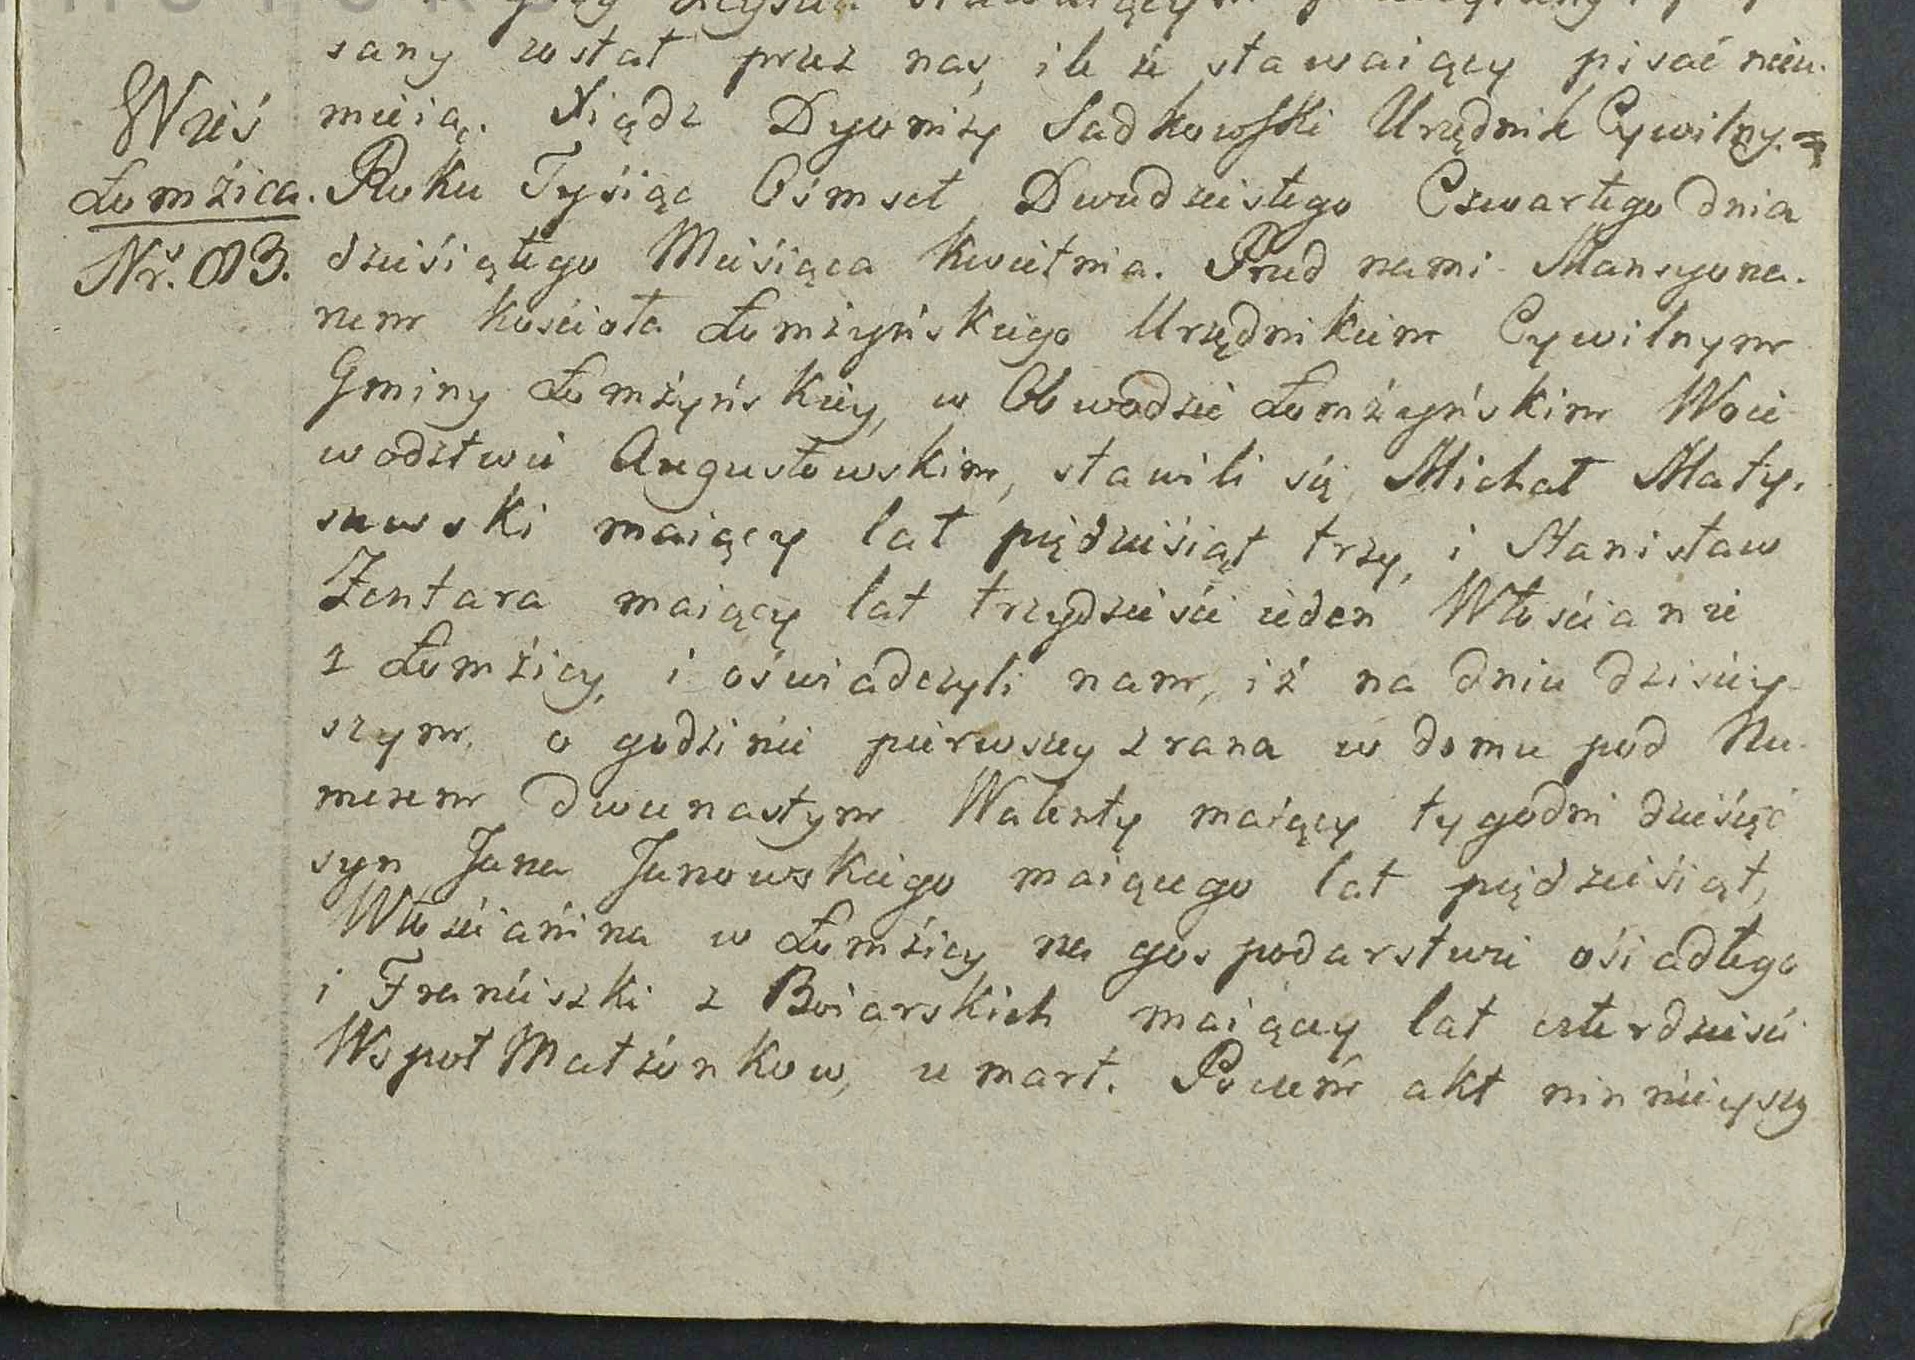 sany został przez nas, ile że stawaiący pisać nieu-
mieią. Xiądz Dyonizy Sadkowski Urzędnik Cywilny.=
Wieś
Łomżica.
Nr. 83.
Roku Tysiąc Ośmset Dwudziestego Czwartego dnia
dziesiątego Miesiąca Kwietnia. Przed nami Mansyona-
rzem Kościoła Łomżyńskiego Urzędnikiem Cywilnym
Gminy Łomżyńskiey, w Obwodzie Łomżyńskim Woie
wodztwie Augustowskim, stawili się Michał Maty-
szewski maiący lat piędziesiąt trzy, i Stanisław
Zentara maiący lat trzydzieście ieden Włościanie
z Łomżicy, i oświadczyli nam, iż na dniu dzisiey-
szym, o godzinie pierwszey z rana w domu pod Nu-
merem dwunastym Walenty maiący tygodni dziesięć
syn Jana Janowskiego maiącego lat piędziesiąt,
Włościanina w Łomżicy na gospodarstwie osiadłego
i Franciszki z Boiarskich maiącey lat czterdzieści
Wspoł Małżonkow, umarł. Poczem akt ninnieyszy